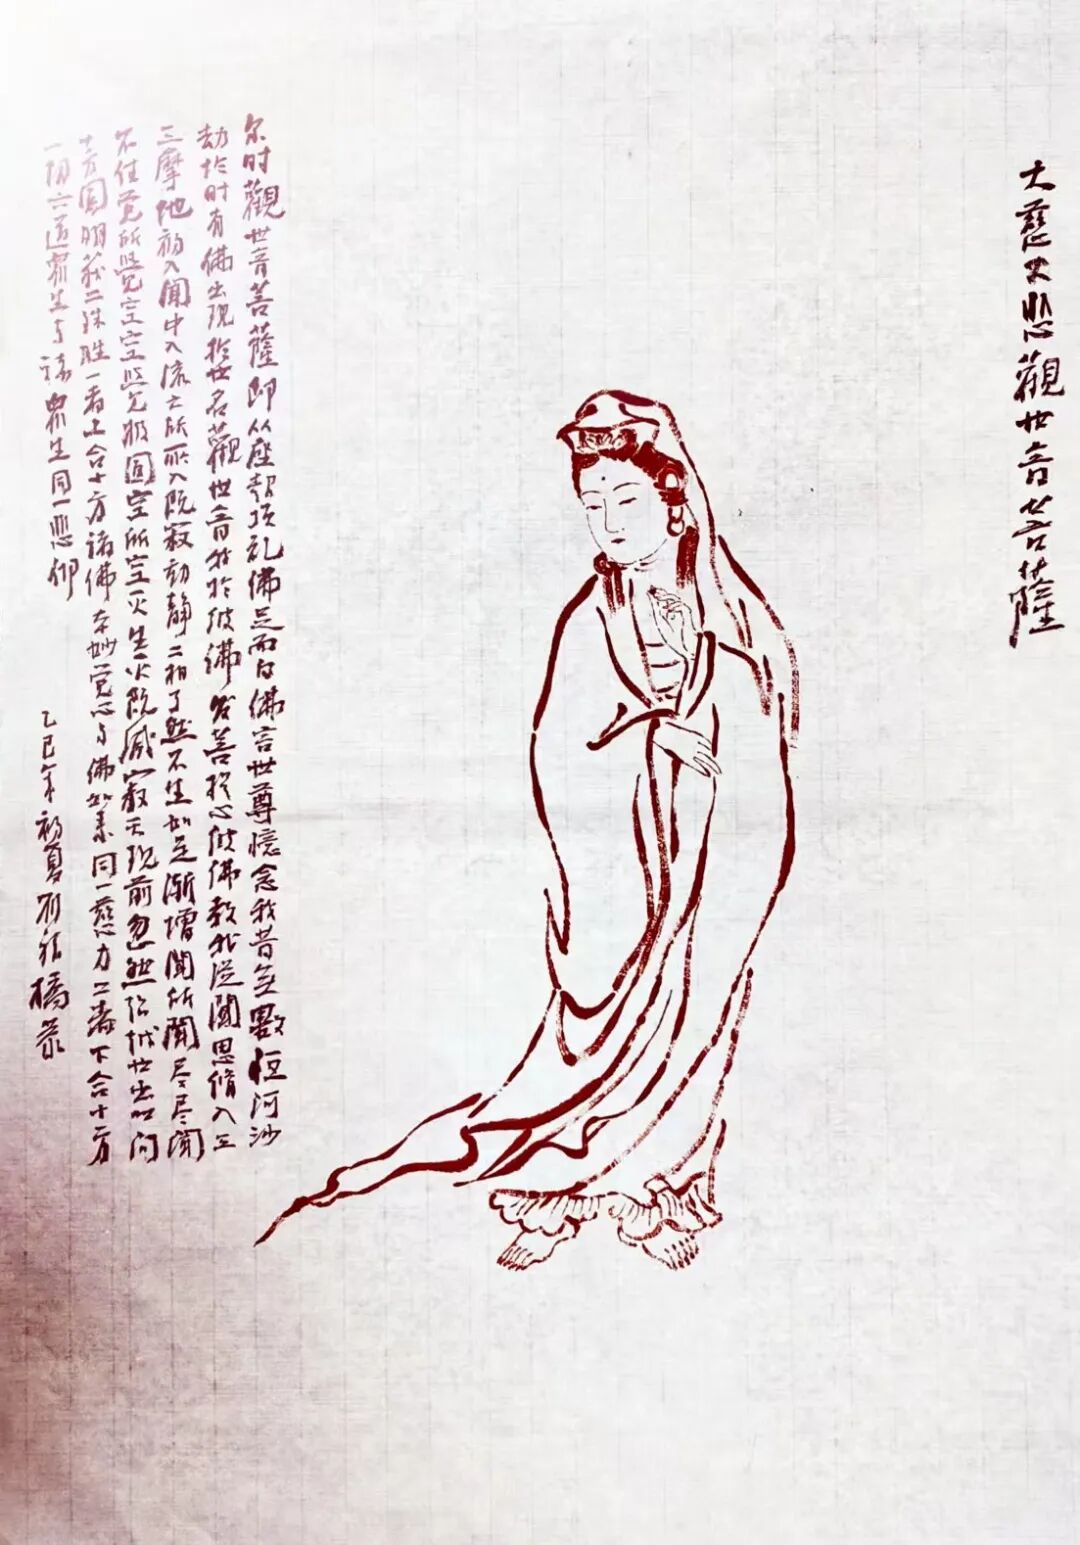 大慈大悲觀世音菩薩
尔时觀世音菩薩即从座起顶礼佛足而白佛言世尊憶念我昔无數恒河沙
劫於时有佛出现於世名觀世音我於彼佛发菩提心彼佛教我從闻思脩入三
三摩地初入闻中入流亡所所入既寂动静二相了然不生如是渐增闻所闻尽尽闻
不住觉所覺空空覺极圆空所空灭生灭既灭寂灭现前忽然超越世出世间
十方圆明获二殊胜一者上合十方诸佛本妙觉心与佛如来同一慈力二者下合十方
一切六道眾生与诸眾生同一悲仰
乙巳年初夏